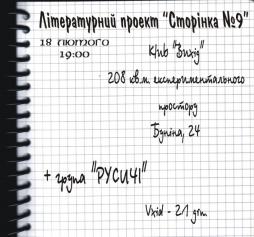 Літературний проект "Сторінка №9"
18 лютого
19:00
Клуб "Вихід"
208 кв.м. експериментального
простору
Буніна, 24
+ група "РУСИЧІ"
Vxid - 21 grn